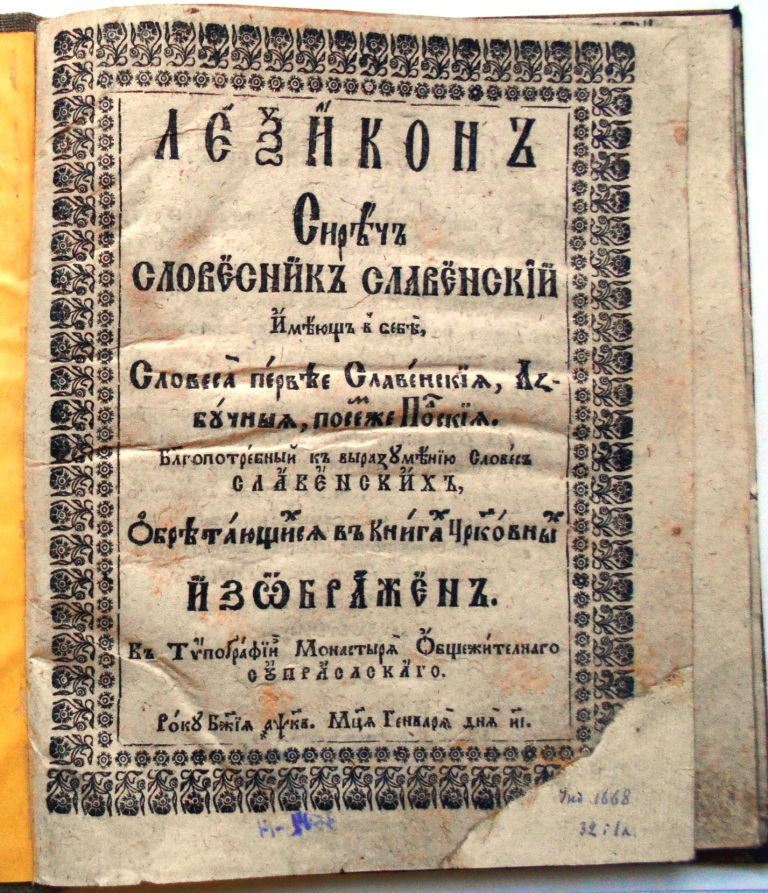 ЛЕѮИКОНЪ
Сирѣчъ
СЛОВЕСНИКЪ СЛАВЕНСКІЙ
Имѣющъ в̾ себѣ,
Словеса первѣе Славенскїѧ, Аз-
бучныѧ, посемⷤе Поⷧскїѧ.
Бл҃гопотребный къ выразꙋмѣнїю Словесъ
СЛАВЕНСКИХЪ,
Ѡбрѣтающиⷯсѧ въ книгаⷯ Цркоⷡныⷯ
ИЗѠБРАЖЕНЪ.
Въ Тѷпографїи Монастырѧ Ѻбщежителнаго
СꙊПРАСЛСКАГО.
Рокꙋ Бж҃їѧ ҂аѱк҃в. Мц҃а Генварѧ днѧ и҃і.
Инв 1668